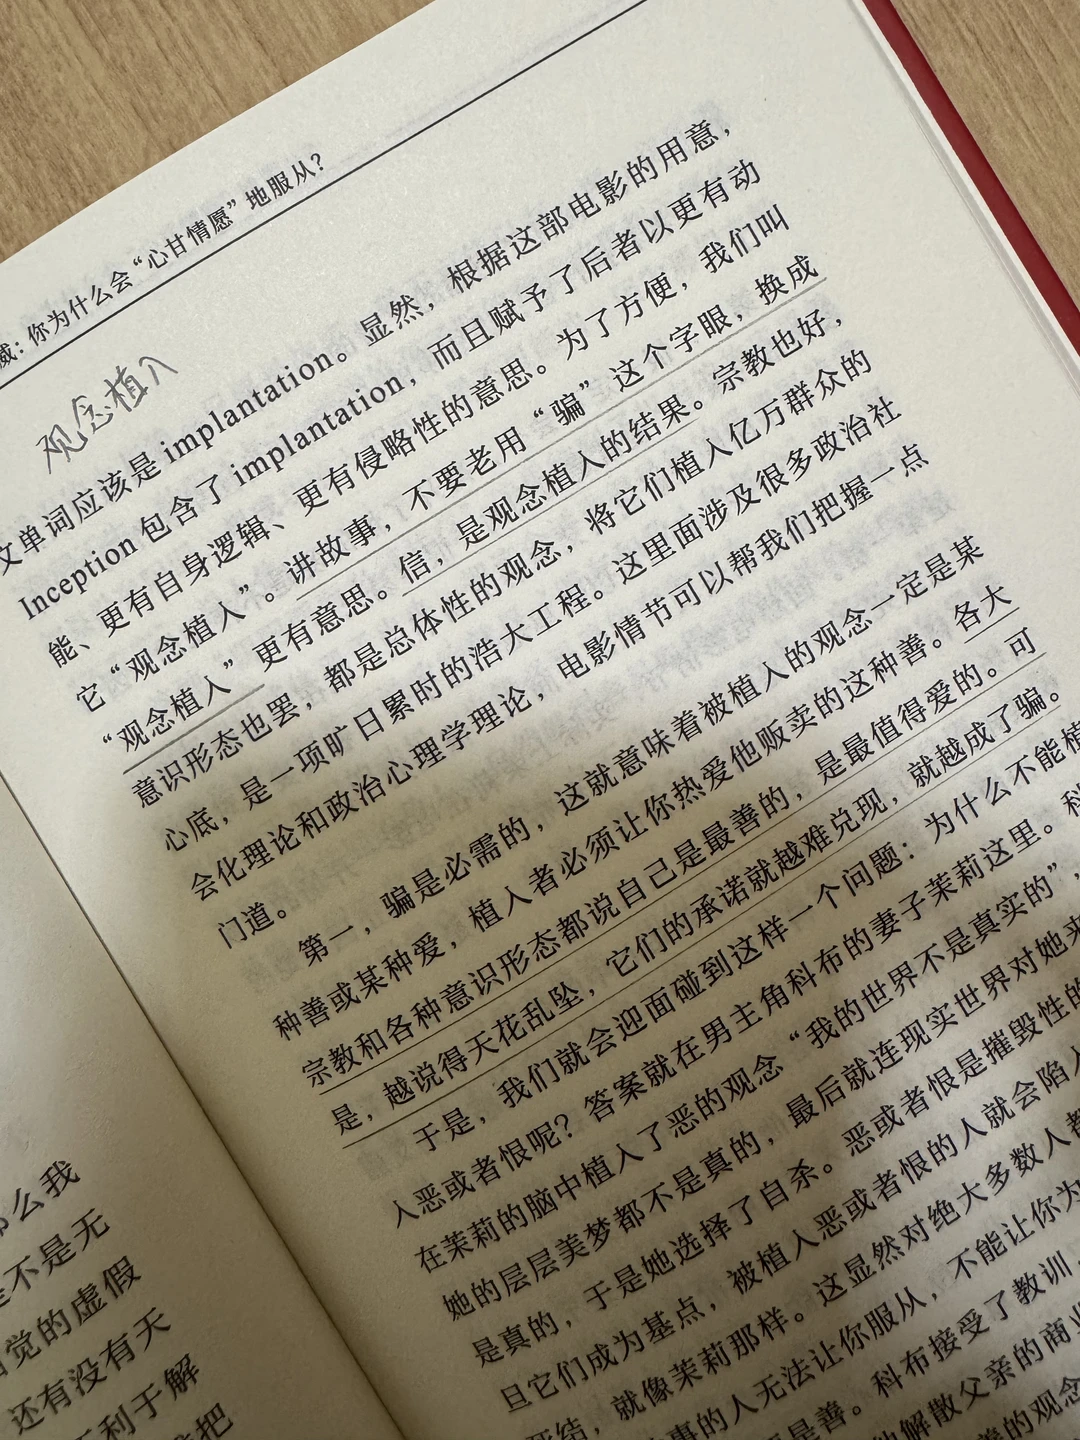 威：你为什么会“心甘情愿”地服从？
观念植入
文单词应该是 implantation。显然，根据这部电影的用意，
Inception 包含了 implantation，而且赋予了后者以更有动
能、更有自身逻辑、更有侵略性的意思。为了方便，我们叫
它“观念植入”。讲故事，不要老用“骗”这个字眼，换成
“观念植入”更有意思。信，是观念植入的结果。宗教也好，
意识形态也罢，都是总体性的观念，将它们植入亿万群众的
心底，是一项旷日累时的浩大工程。这里面涉及很多政治社
会化理论和政治心理学理论，电影情节可以帮我们把握一点
门道。
第一，骗是必需的，这就意味着被植入的观念一定是某
种善或某种爱，植入者必须让你热爱他贩卖的这种善。各大
宗教和各种意识形态都说自己是最善的，是最值得爱的。可
是，越说得天花乱坠，它们的承诺就越难兑现，就越成了骗。
于是，我们就会迎面碰到这样一个问题：为什么不能植
入恶或者恨呢？答案就在男主角科布的妻子茉莉这里。科
在茉莉的脑中植入了恶的观念“我的世界不是真实的”，
她的层层美梦都不是真的，最后就连现实世界对她来
是真的，于是她选择了自杀。恶或者恨是摧毁性的
旦它们成为基点，被植入恶或者恨的人就会陷入
死结，就像茉莉那样。这显然对绝大多数人都
事的人无法让你服从，不能让你为
是善。科布接受了教训，
他解散父亲的商业
善的观念
那么我
是不是无
自觉的虚假
还有没有天
利于解
把